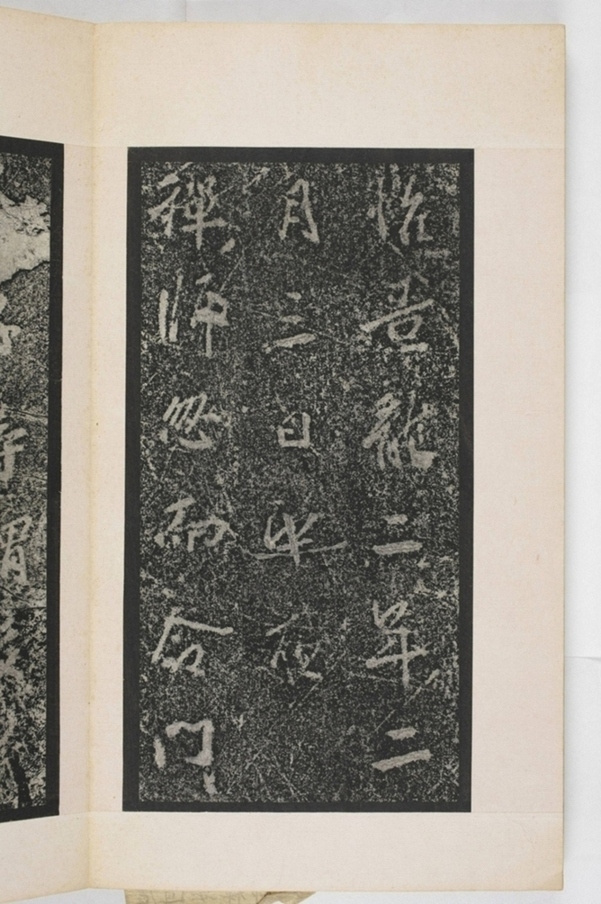 惟景龍二年二
月三日半夜
禪師忽而命門